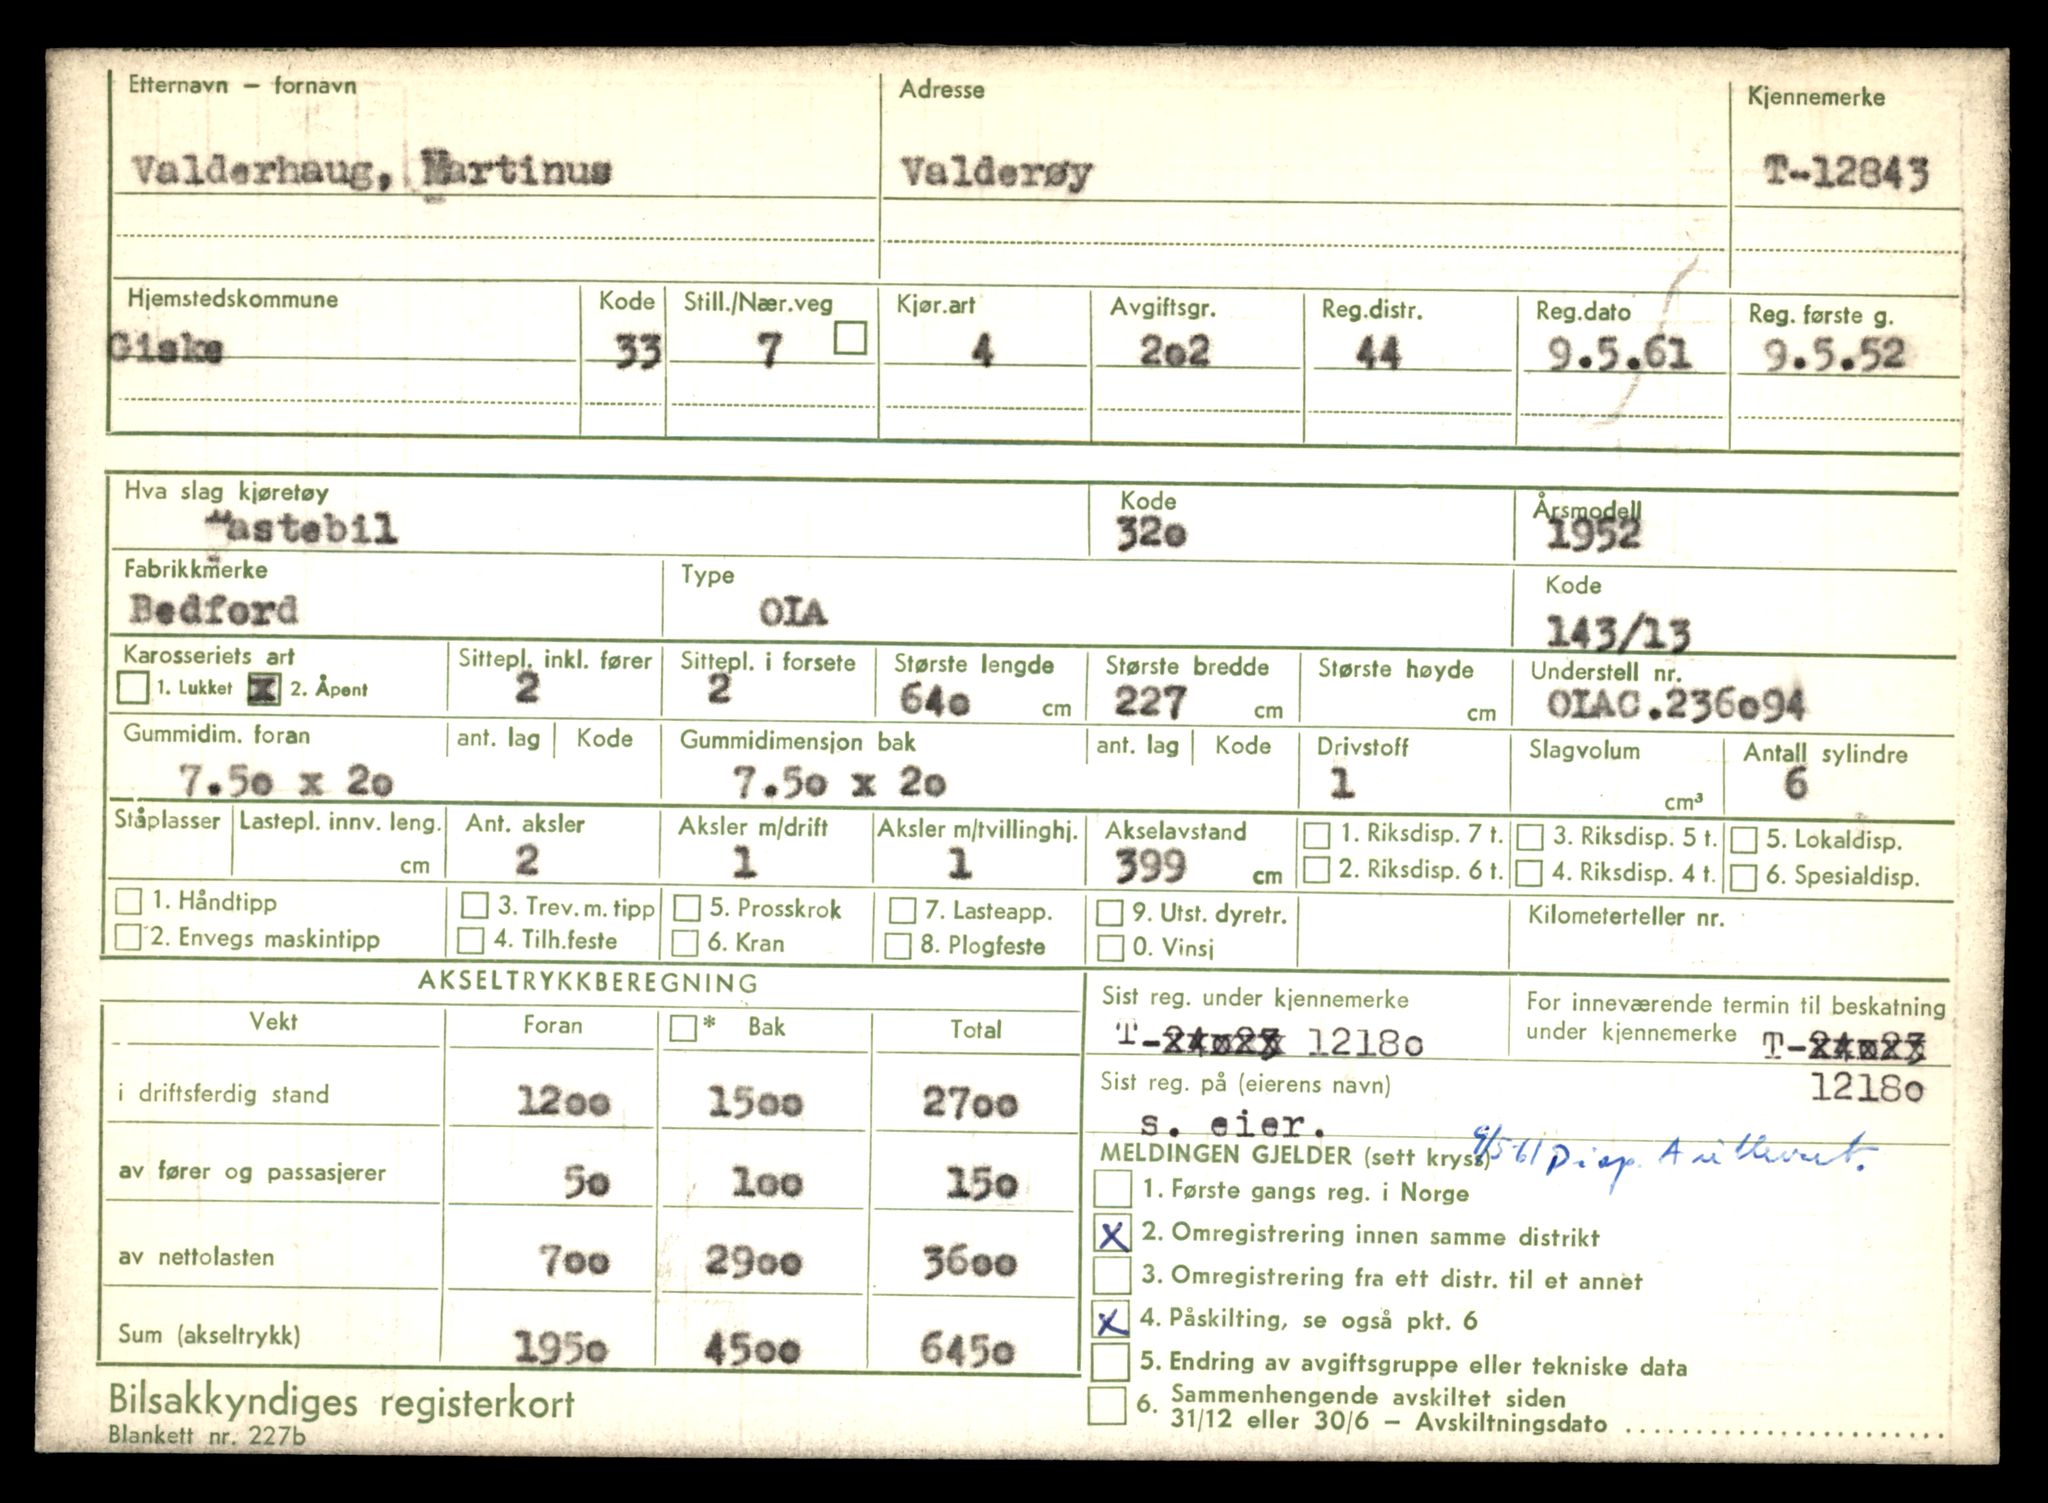 Etternavn – fornavn Adresse Kjennemerke
Valderhaug, Martinus Valderøy T-12843
Hjemstedskommune Kode Still./Nær.veg Kjør.art Avgiftsgr. Reg.distr. Reg.dato Reg. første g.
Giske 33 7 4 2o2 44 9.5.61 9.5.52
Hva slag kjøretøy Kode Årsmodell
Lastebil 32o 1952
Fabrikkmerke Type Kode
Bedford OIA 143/13
Karosseriets art Sittepl. inkl. fører Sittepl. i forsete Største lengde Største bredde Største høyde Understell nr.
1. Lukket x 2. Åpent 2 2 64o cm 227 cm cm OIAC.236o94
Gummidim. foran ant. lag Kode Gummidimensjon bak ant. lag Kode Drivstoff Slagvolum Antall sylindre
7.5o x 2o 7.5o x 2o 1 cm³ 6
Ståplasser Lastepl. innv. leng. Ant. aksler Aksler m/drift Aksler m/tvillinghj. Akselavstand 1. Riksdisp. 7 t. 3. Riksdisp. 5 t. 5. Lokaldisp.
cm 2 1 1 399 cm 2. Riksdisp. 6 t. 4. Riksdisp. 4 t. 6. Spesialdisp.
1. Håndtipp 3. Trev. m. tipp 5. Prosskrok 7. Lasteapp. 9. Utst. dyretr. Kilometerteller nr.
2. Envegs maskintipp 4. Tilh.feste 6. Kran 8. Plogfeste 0. Vinsj
AKSELTRYKKBEREGNING
Vekt Foran * Bak Total
i driftsferdig stand 12oo 15oo 27oo
av fører og passasjerer 5o 1oo 15o
av nettolasten 7oo 29oo 36oo
Sum (akseltrykk) 195o 45oo 645o
Sist reg. under kjennemerke For inneværende termin til beskatning
under kjennemerke T-
T- 1218o
Sist reg. på (eierens navn) 1218o
s. eier.
MELDINGEN GJELDER (sett kryss) 9/5-61 Disp.
1. Første gangs reg. i Norge
x 2. Omregistrering innen samme distrikt
3. Omregistrering fra ett distr. til et annet
x 4. Påskilting, se også pkt. 6
5. Endring av avgiftsgruppe eller tekniske data
6. Sammenhengende avskiltet siden
31/12 eller 30/6 – Avskiltningsdato
Bilsakkyndiges registerkort
Blankett nr. 227b